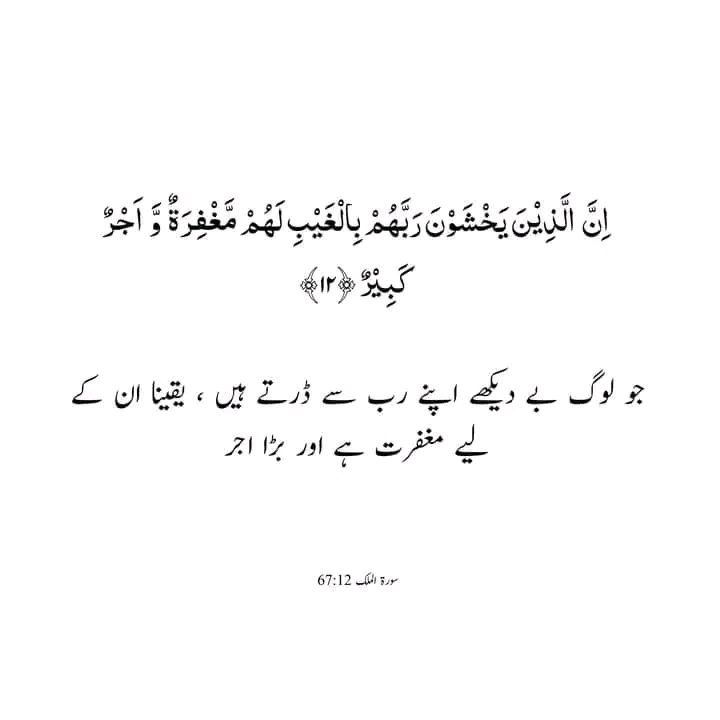 اِنَّ الَّذِيْنَ يَخْشَوْنَ رَبَّهُمْ بِالْغَيْبِ لَهُمْ مَّغْفِرَةٌ وَّ اَجْرٌ
كَبِيْرٌ ﴿۱۲﴾
جو لوگ بے دیکھے اپنے رب سے ڈرتے ہیں ، یقینا ان کے
لیے مغفرت ہے اور بڑا اجر
سورۃ الملک 67:12